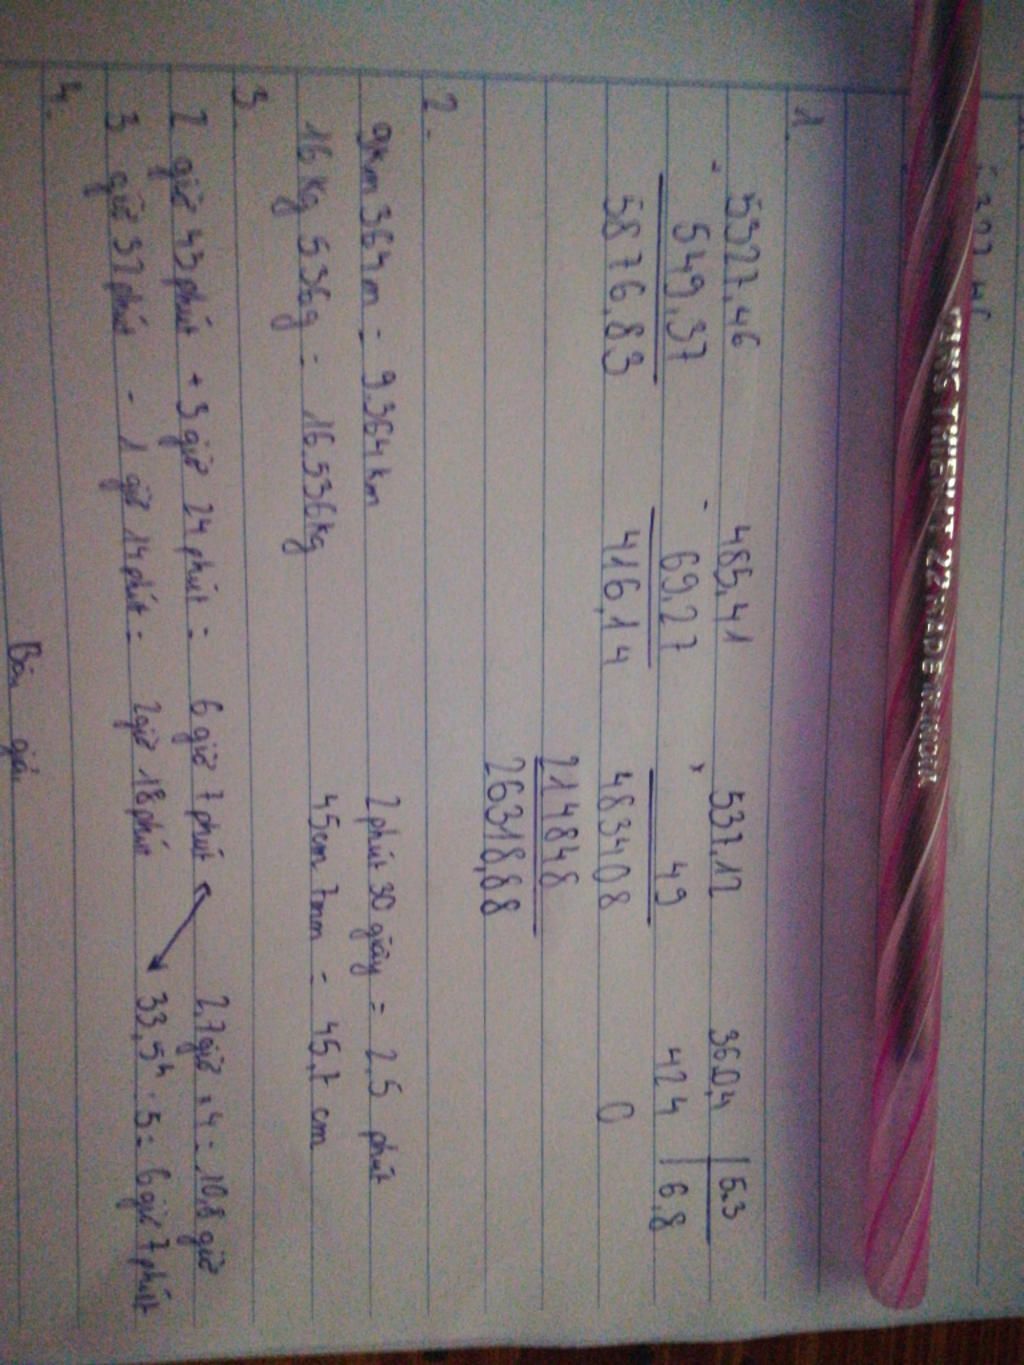 1.
5327,46 485,41 537,12 360,4 | 5.3
- 549,37 - 69,27 x 49 424 | 6.8
5876,83 416,14 483408 0
214848
26318,88
2.
9km 364m = 9,364 km 2 phút 30 giây = 2,5 phút
16 kg 536g = 16,536 kg 45cm 7mm = 45,7 cm
3.
2 giờ 43 phút + 3 giờ 24 phút = 6 giờ 7 phút 2,7 giờ x 4 = 10,8 giờ
3 giờ 32 phút - 1 giờ 14 phút = 2 giờ 18 phút 33,5h : 5 = 6 giờ 7 phút
4.
Bài giải